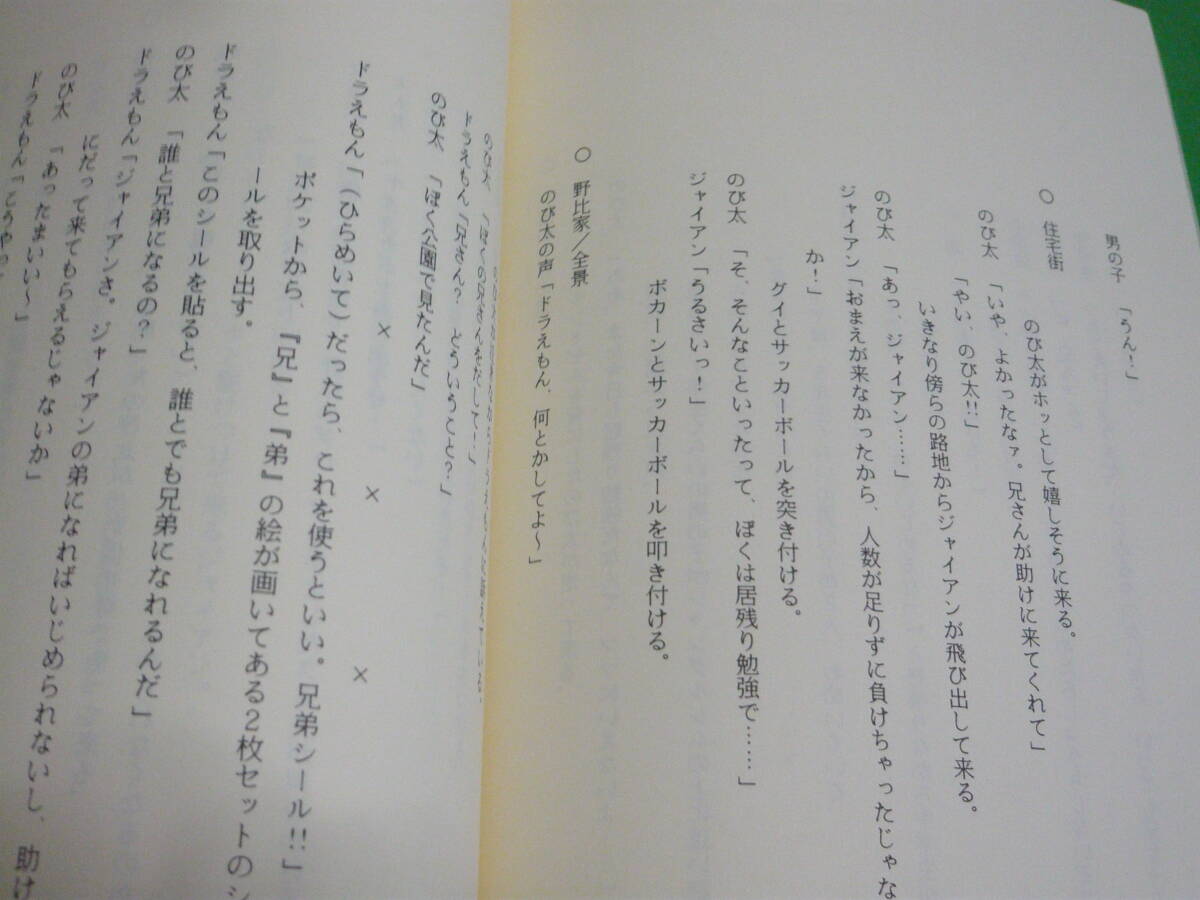 男の子 「うん！」
○ 住宅街
のび太がホッとして嬉しそうに来る。
のび太 「いや、よかったなァ。兄さんが助けに来てくれて」
「やい、のび太!!」
いきなり傍らの路地からジャイアンが飛び出して来る。
のび太 「あっ、ジャイアン……」
ジャイアン「おまえが来なかったから、人数が足りずに負けちゃったじゃな
か！」
グイとサッカーボールを突き付ける。
のび太 「そ、そんなこといったって、ぼくは居残り勉強で……」
ジャイアン「うるさいっ！」
ボカーンとサッカーボールを叩き付ける。
○ 野比家／全景
のび太の声「ドラえもん、何とかしてよ～」
のび太 「ぼくの兄さんをだして！」
ドラえもん「兄さん？ どういうこと？」
のび太 「ぼく公園で見たんだ」
× × ×
ドラえもん「（ひらめいて）だったら、これを使うといい。兄弟シール!!」
ポケットから、『兄』と『弟』の絵が画いてある２枚セットのシ
ールを取り出す。
ドラえもん「このシールを貼ると、誰とでも兄弟になれるんだ」
のび太 「誰と兄弟になるの？」
ドラえもん「ジャイアンさ。ジャイアンの弟になればいじめられないし、助け
にだって来てもらえるじゃないか」
のび太 「あったまいい～」
ドラえもん「こうやっ